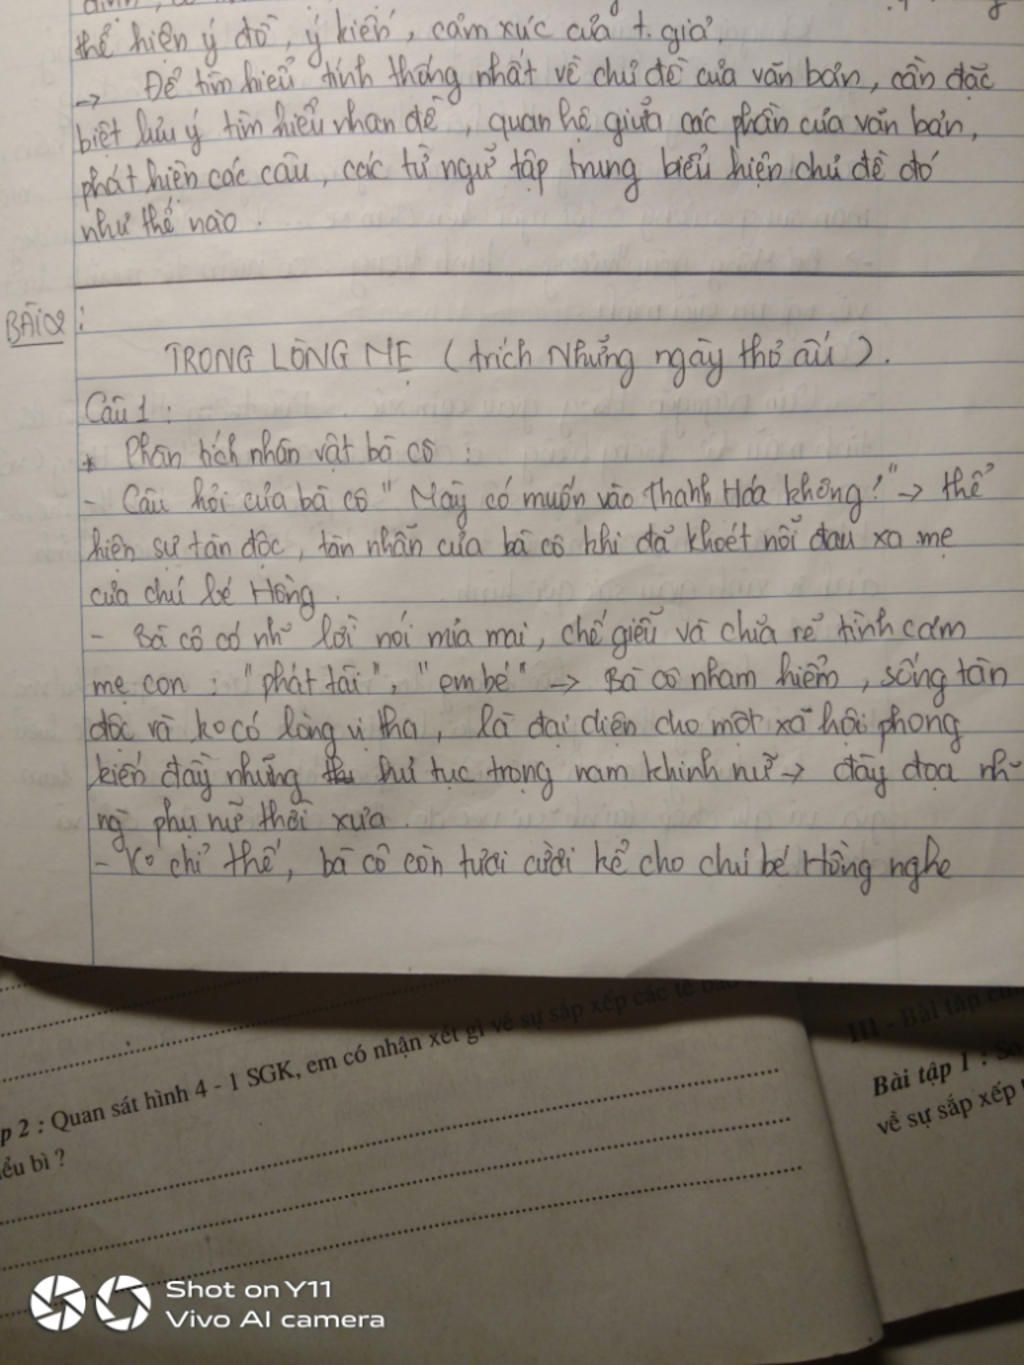 thể hiện ý đồ, ý kiến, cảm xúc của t. giả.
→ Để tìm hiểu tính thống nhất về chủ đề của văn bản, cần đặc
biệt lưu ý tìm hiểu nhan đề, quan hệ giữa các phần của văn bản,
phát hiện các câu, các từ ngữ tập trung biểu hiện chủ đề đó
như thế nào.
BÀI 2 :
TRONG LÒNG MẸ (trích Những ngày thơ ấu).
Câu 1 :
* Phân tích nhân vật bà cô :
- Câu hỏi của bà cô "Mày có muốn vào Thanh Hóa không!" → thể
hiện sự tàn độc, tàn nhẫn của bà cô khi đã khoét nỗi đau xa mẹ
của chú bé Hồng.
- Bà cô có nh~ lời nói mỉa mai, chế giễu và chia rẽ tình cảm
mẹ con : "phát tài", "em bé" → Bà cô nham hiểm, sống tàn
độc và ko có lòng vị tha, là đại diện cho một xã hội phong
kiến đầy những hủ tục trọng nam khinh nữ → đày đọa nh~
ng phụ nữ thời xưa.
- Ko chỉ thế, bà cô còn tươi cười kể cho chú bé Hồng nghe
p 2 : Quan sát hình 4 - 1 SGK, em có nhận xét gì về sự sắp xếp các tế bào
ểu bì ?
III - Bài tập
Bài tập 1 :
về sự sắp xếp
Shot on Y11
Vivo AI camera